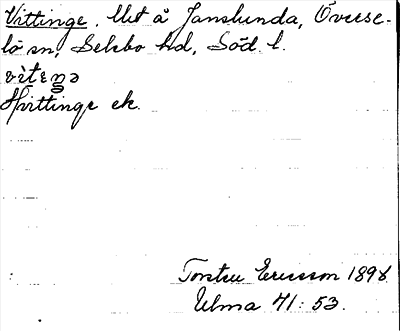 Vittinge. Utj å Janslunda, Överse-
lö sn, Selebo hd, Söd. l.
vìtɛŋə
Hvittinge ek.
Torsten Ericsson 1898
Ulma 71:53.